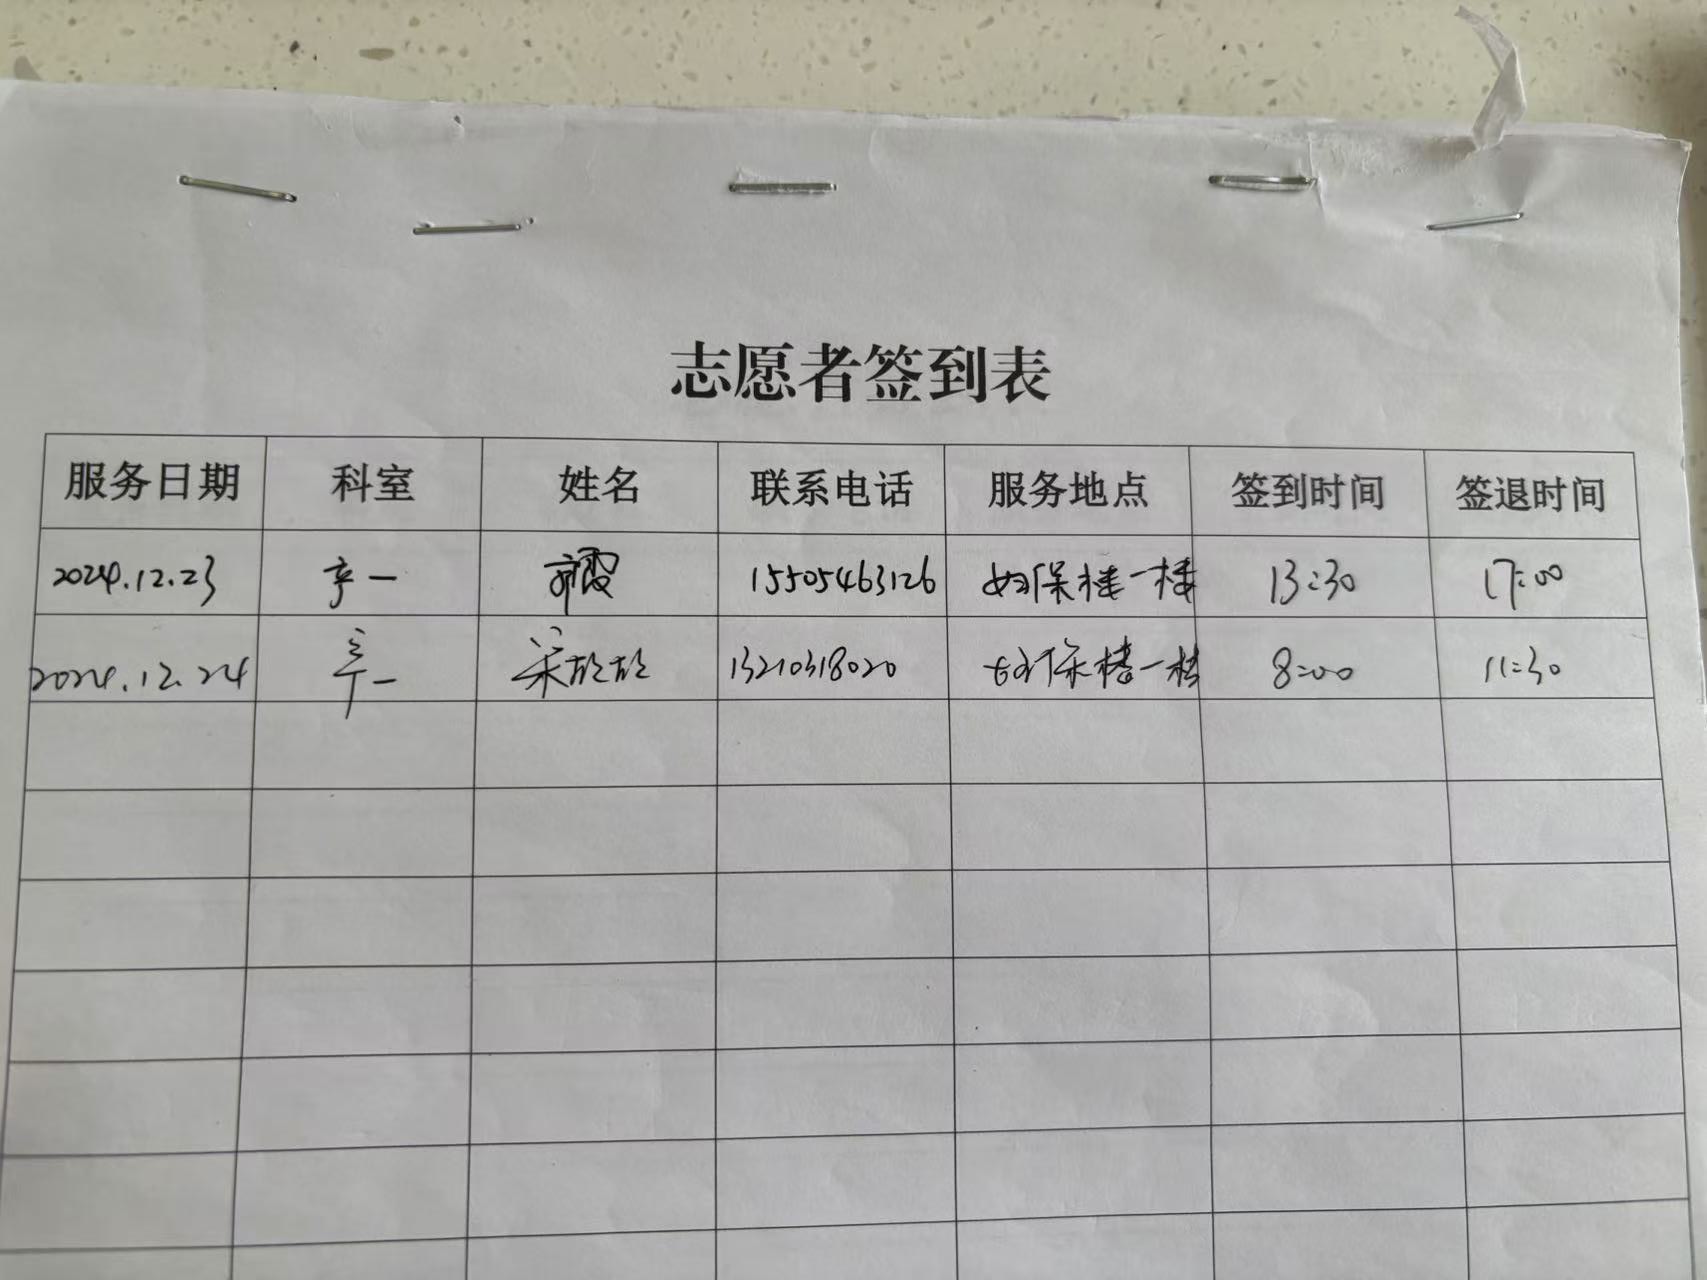 志愿者签到表
服务日期 科室 姓名 联系电话 服务地点 签到时间 签退时间
2024.12.23 产一 15505463126 妇保楼一楼 13:30 17:00
2024.12.24 产一 宋 13210318020 妇保楼一楼 8:00 11:30